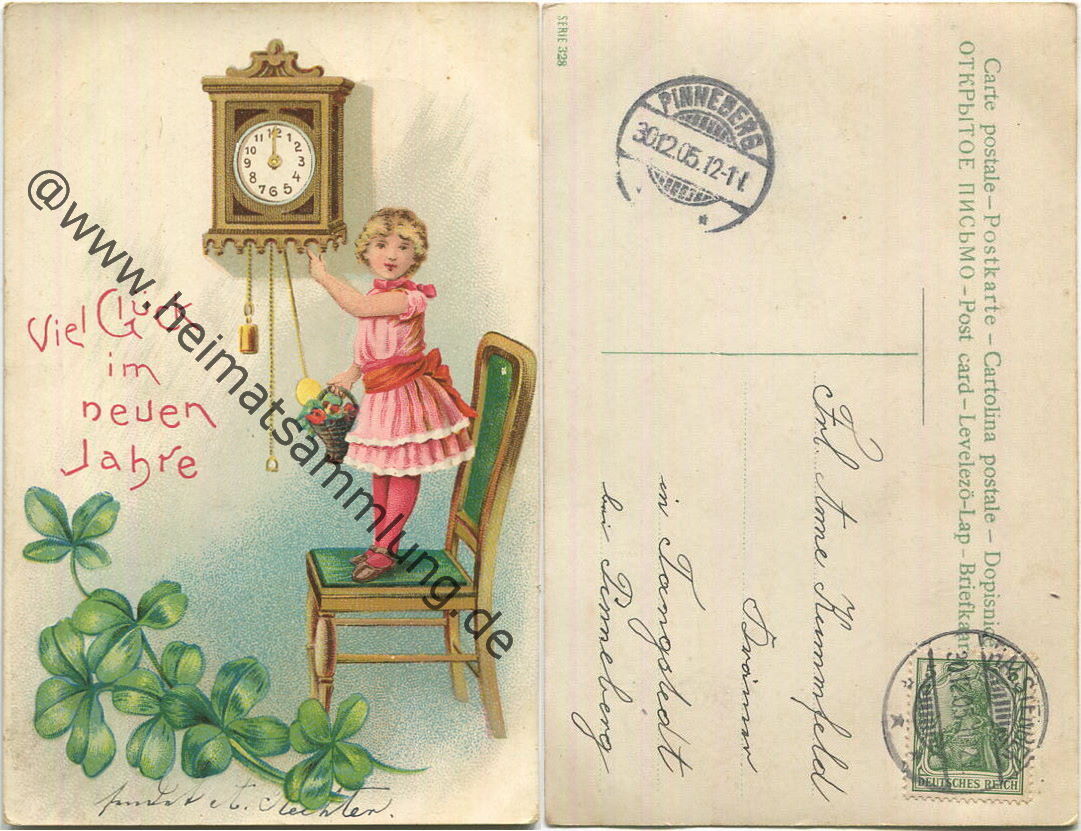 Viel Glück
im
neuen
Jahre
12
1
2
3
4
5
6
7
8
9
10
11
@www.heimatsammlung.de
sendet A. Rechter.
SERIE 328
Carte postale – Postkarte – Cartolina postale – Dopisnice
ОТКРЫТОЕ ПИСЬМО – Post card – Levelező-Lap – Briefkaart
PINNEBERG
30.12.05.12-1N.
Frl. Anne Kummfeld
in Tangstedt
bei Pinneberg
DEUTSCHES REICH